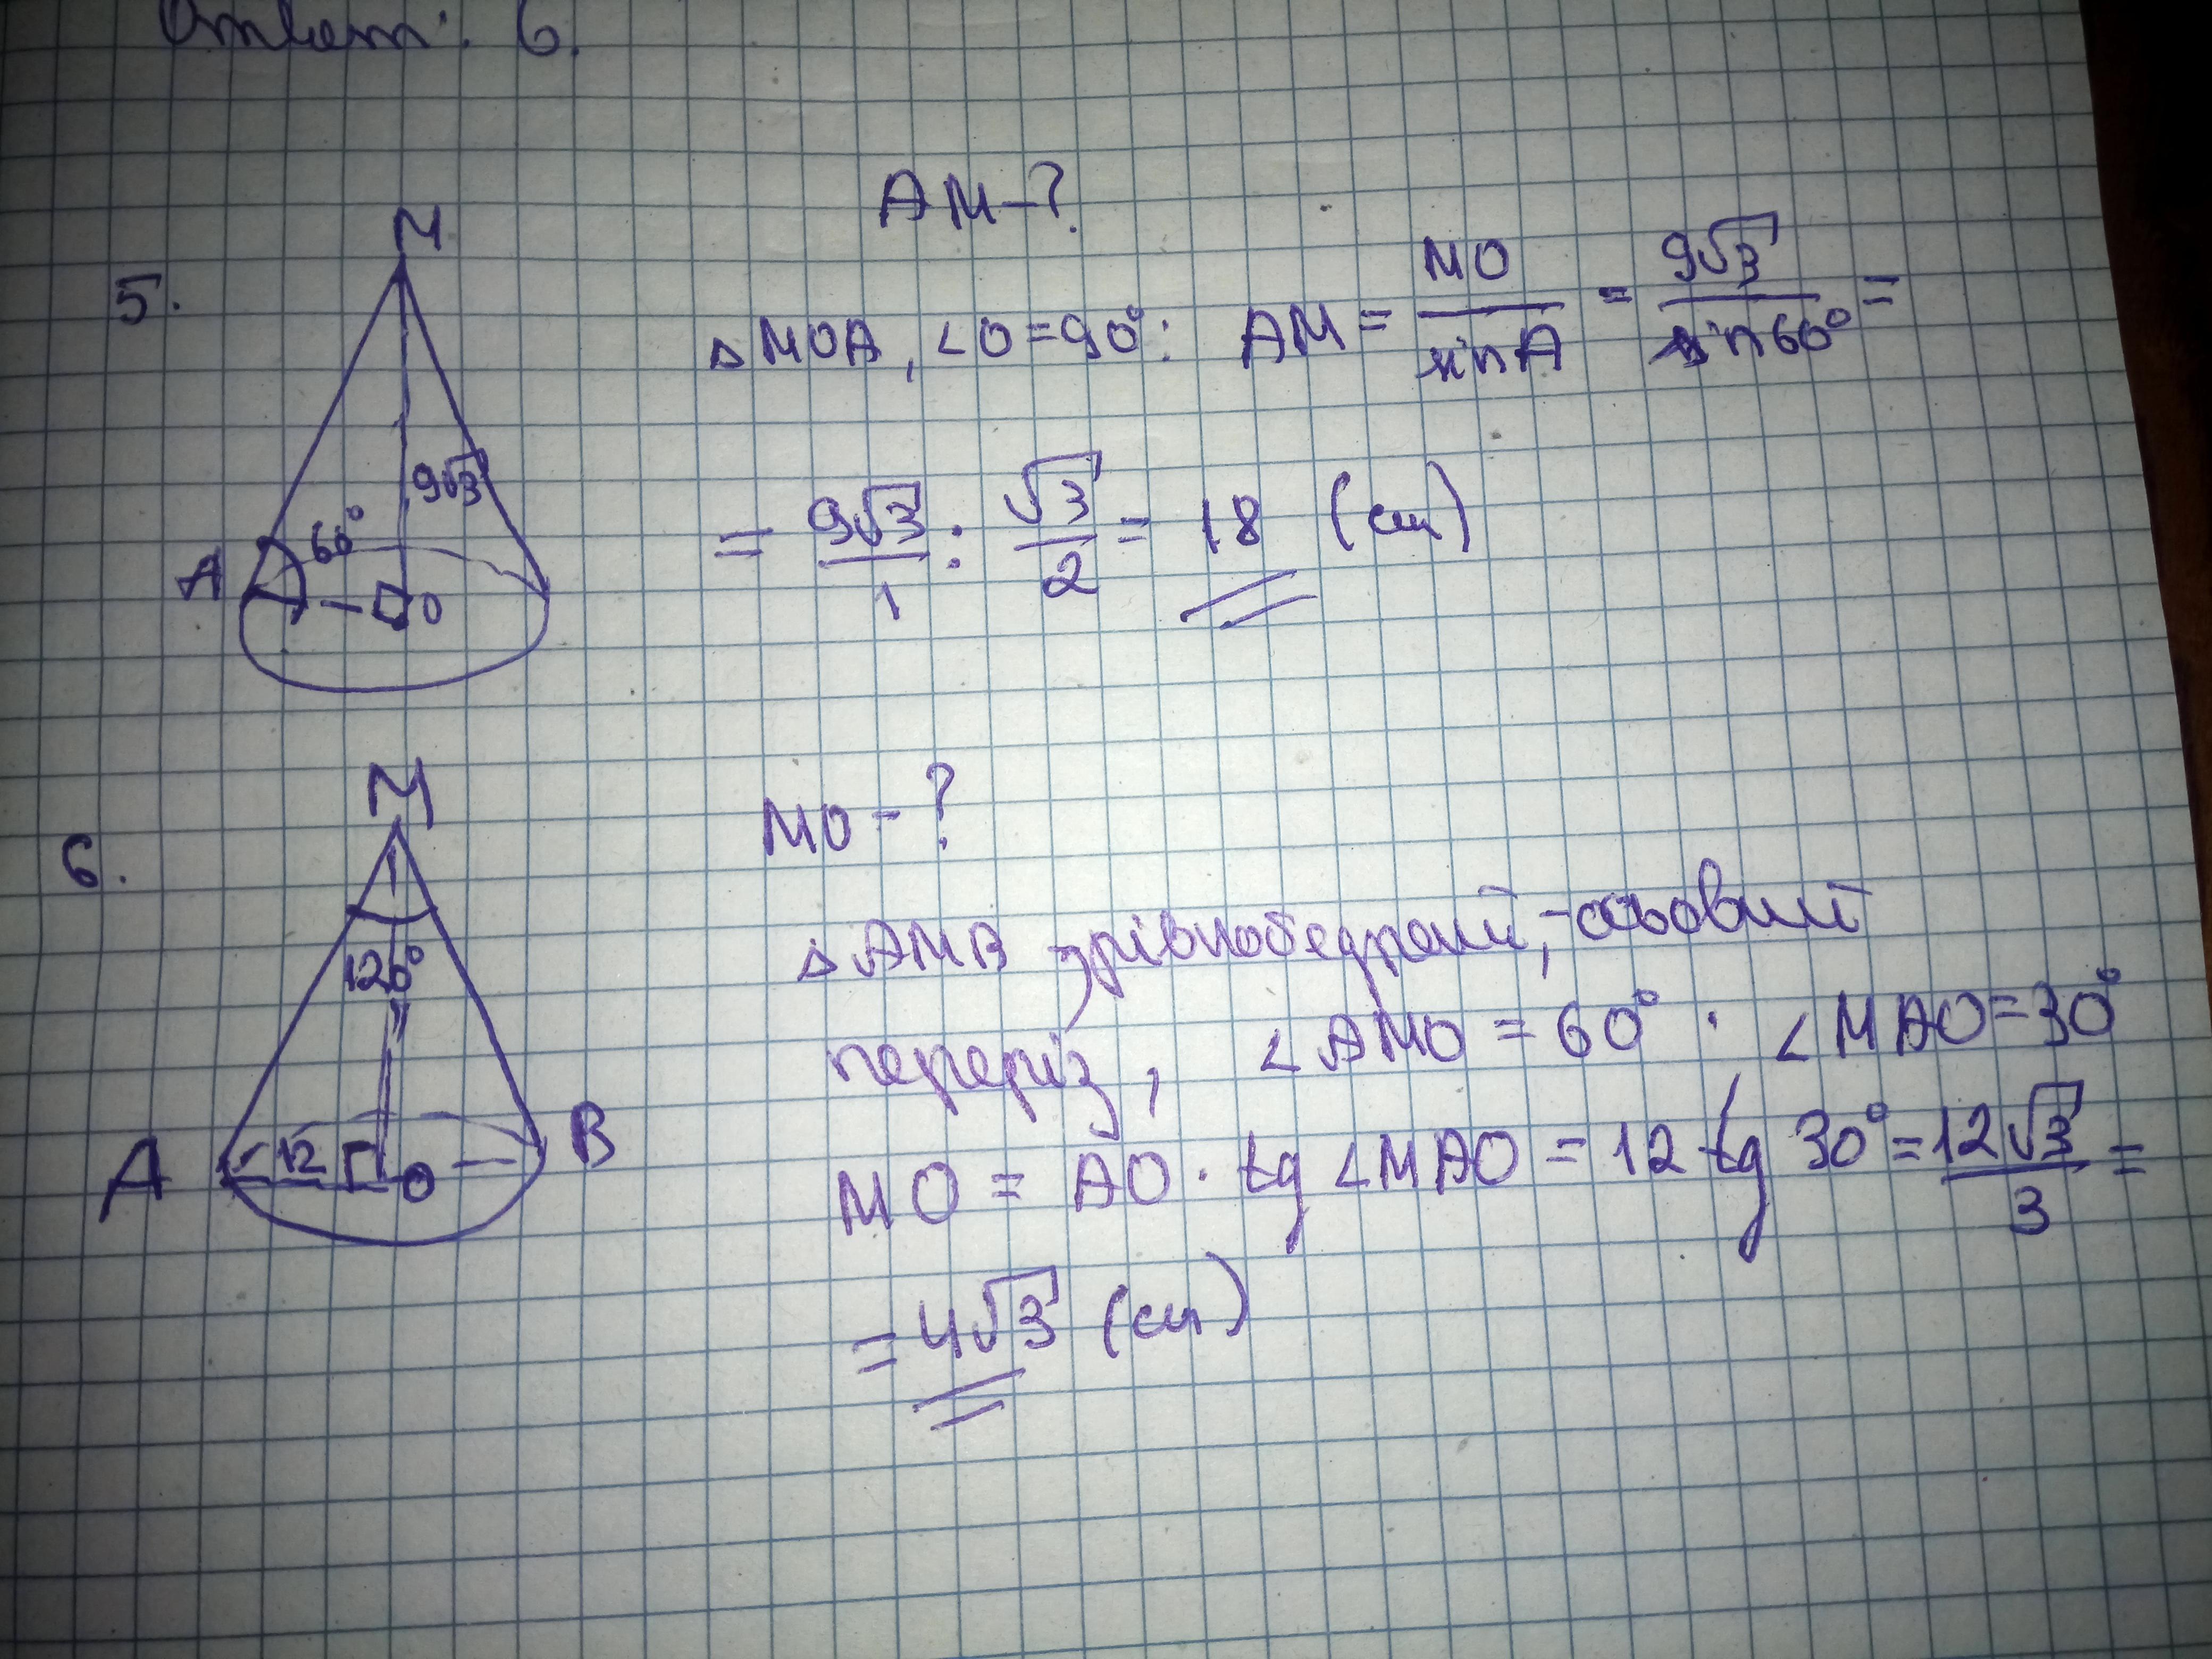 Ответ: 6.
5.
M
9√3
60°
A
O
AM-?
△MOA, ∠O=90°: AM = MO/sinA = 9√3/sin60° =
= 9√3/1 : √3/2 = 18 (см)
6.
M
120°
12
A
O
B
MO-?
△AMB рівнобедрений, -осьовий
переріз, ∠AMO = 60°. ∠MAO=30°
MO = AO · tg ∠MAO = 12 tg 30° = 12√3/3 =
= 4√3 (см)